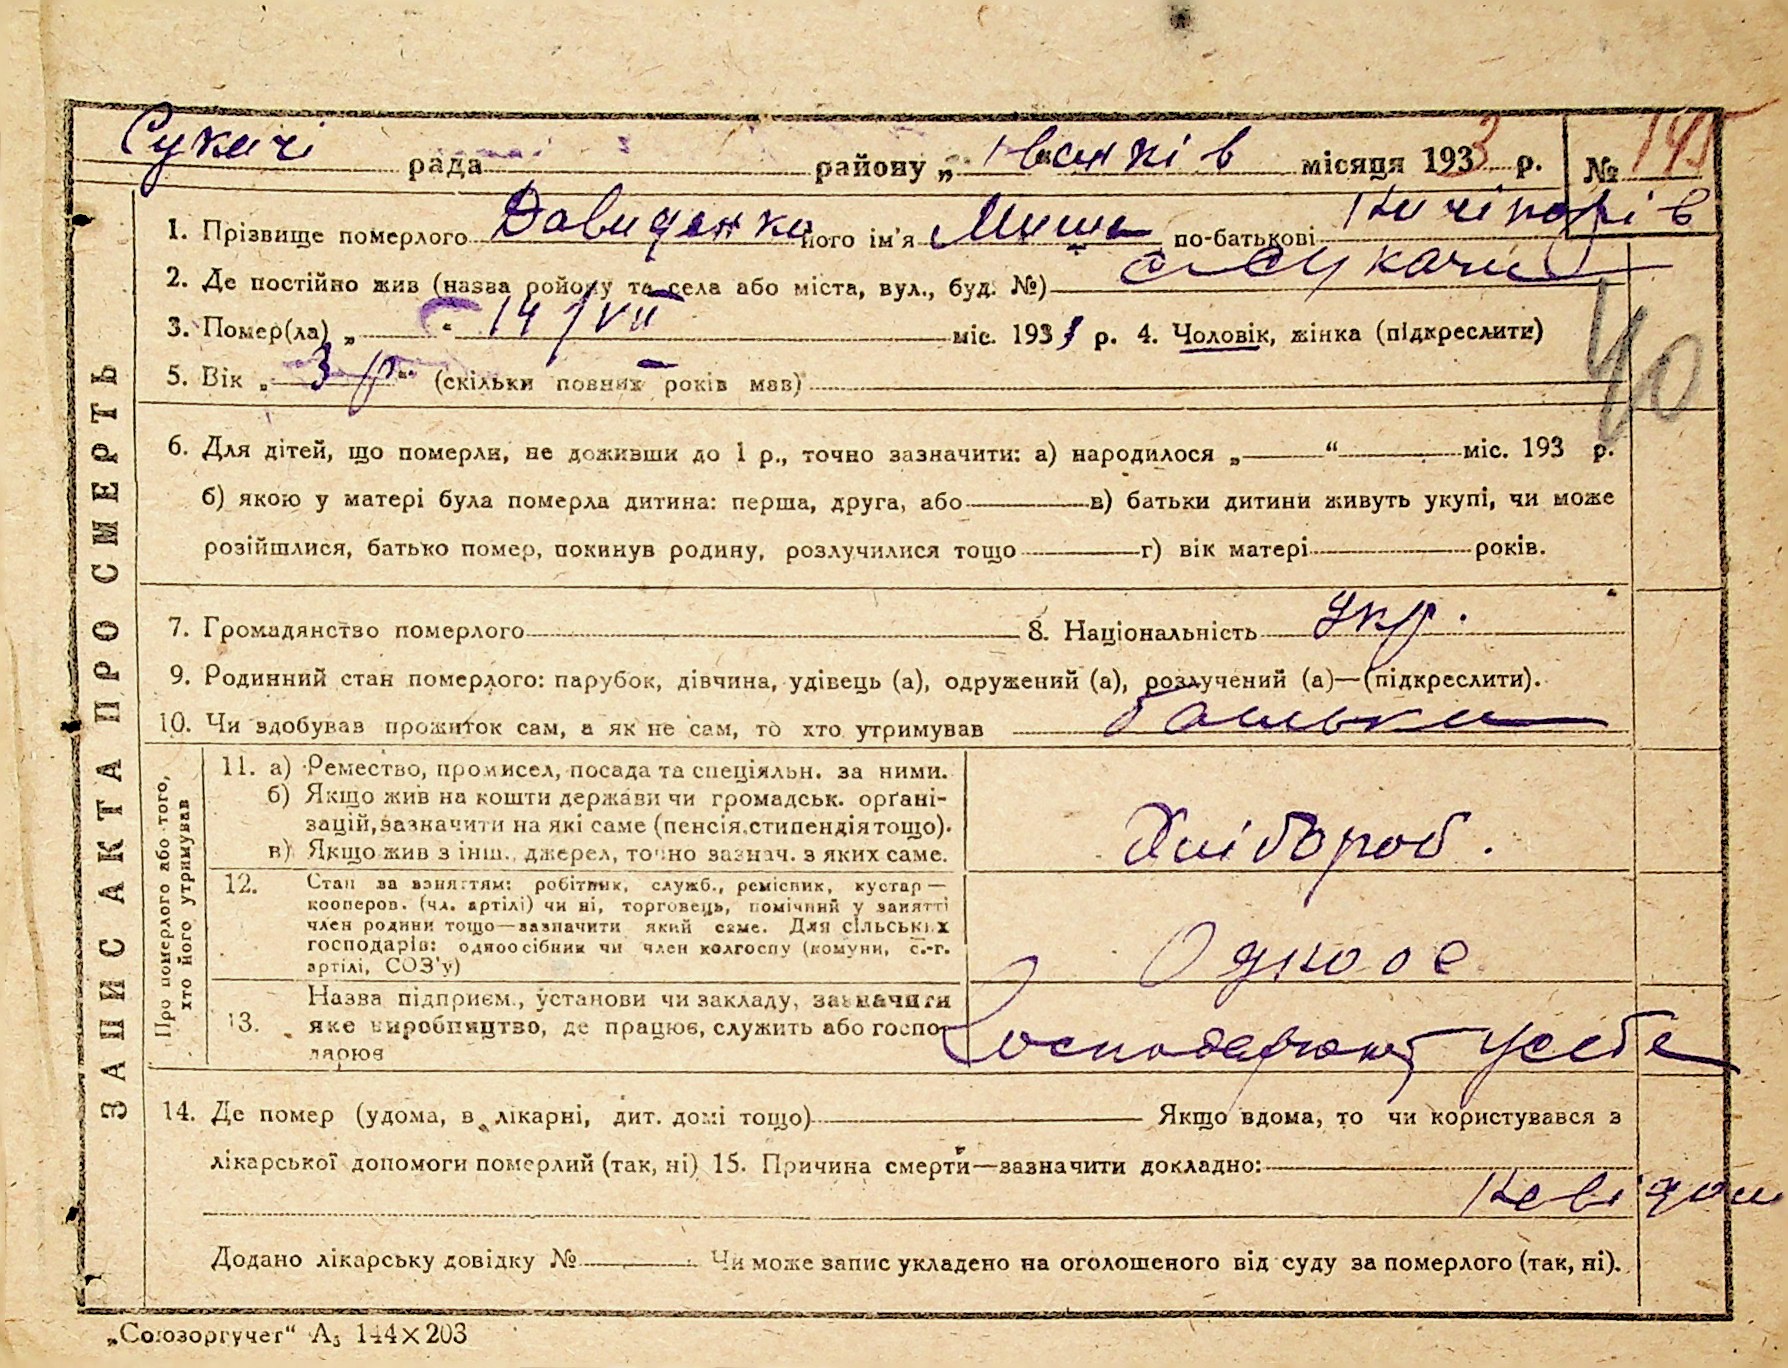 Сукачі рада району „ Іванків місяця 1933 р. № 145
1. Прізвище померлого Давиденко його ім'я Миша по-батькові Ничіпорів
2. Де постійно жив (назва ройону та села або міста, вул., буд. №) с. Сукачи
3. Помер(ла) „ “ 14/VII міс. 1933 р. 4. Чоловік, жінка (підкреслити)
5. Вік „ 3 р “ (скільки повних років мав)
40
6. Для дітей, що померли, не доживши до 1 р., точно зазначити: а) народилося „ “ міс. 193 р.
б) якою у матері була померла дитина: перша, друга, або в) батьки дитини живуть укупі, чи може
розійшлися, батько помер, покинув родину, розлучилися тощо г) вік матері років.
7. Громадянство померлого 8. Національність укр.
9. Родинний стан померлого: парубок, дівчина, удівець (а), одружений (а), розлучений (а)—(підкреслити).
10. Чи здобував прожиток сам, а як не сам, то хто утримував батьки
11. а) Ремество, промисел, посада та спеціяльн. за ними.
б) Якщо жив на кошти держави чи громадськ. орґані-
зацій, зазначити на які саме (пенсія, стипендія тощо).
в) Якщо жив з інш. джерел, точно зазнач. з яких саме.
Хлібороб.
12. Стан за взняттям: робітник, служб., ремісник, кустар—
кооперов. (чл. артілі) чи ні, торговець, помічний у занятті
член родини тощо—зазначити який саме. Для сільських
господарів: одноосібник чи член колгоспу (комуни, с.-г.
артілі, СОЗ'у)
Одноос
13. Назва підприєм., установи чи закладу, зазначити
яке виробництво, де працює, служить або госпо-
дарює
Господарюют у себе
Про померлого або того,
хто його утримував
14. Де помер (удома, в лікарні, дит. домі тощо) Якщо вдома, то чи користувався з
лікарської допомоги померлий (так, ні) 15. Причина смерти—зазначити докладно:
невідом
Додано лікарську довідку № Чи може запис укладено на оголошеного від суду за померлого (так, ні).
ЗАПИС АКТА ПРО СМЕРТЬ
„Союзоргучет“ А₅ 144×203